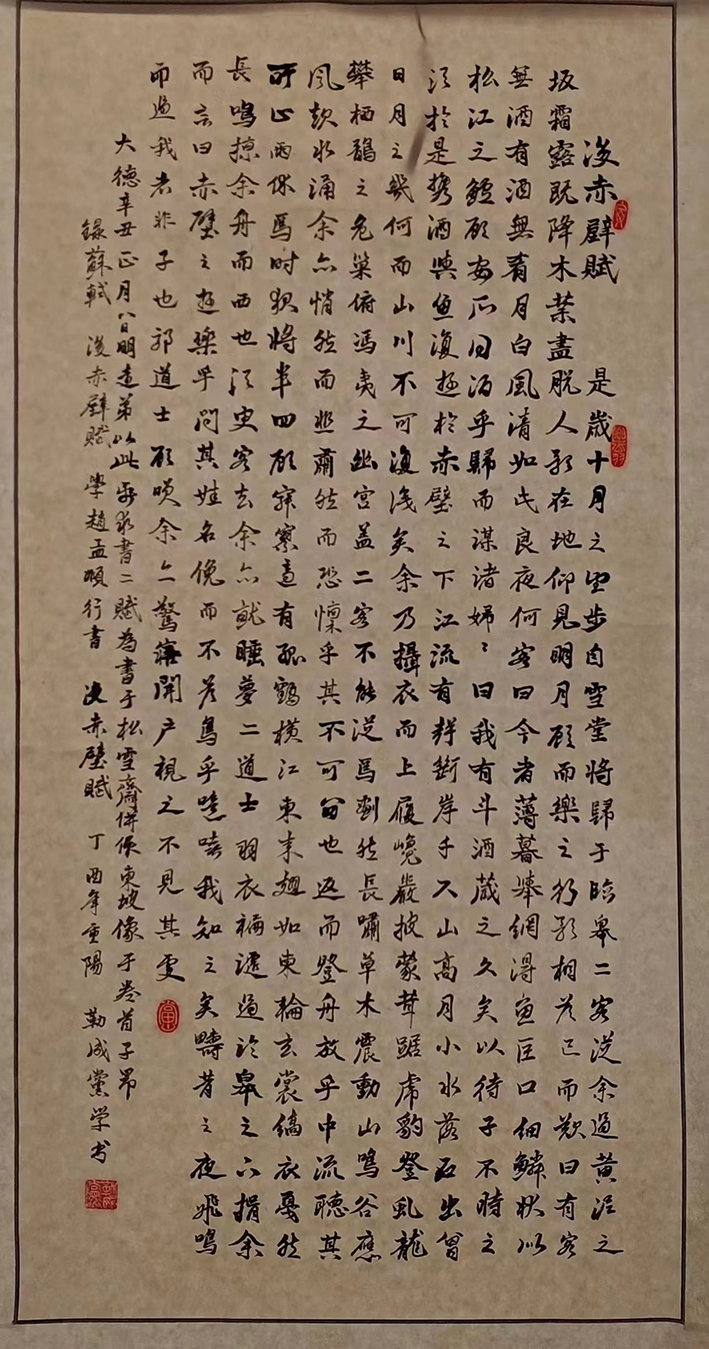 後赤壁賦 是歲十月之望步自雪堂將歸于臨皋二客從余過黃泥之
坂霜露既降木葉盡脫人影在地仰見明月顧而樂之行歌相答已而歎曰有客
無酒有酒無肴月白風清如此良夜何客曰今者薄暮舉網得魚巨口細鱗狀似
松江之鱸顧安所得酒乎歸而謀諸婦〻曰我有斗酒藏之久矣以待子不時之
須於是攜酒與魚復遊於赤壁之下江流有聲斷岸千尺山高月小水落石出曾
日月之幾何而山川不可復識矣余乃攝衣而上履巉巖披蒙茸踞虎豹登虬龍
攀栖鶻之危巢俯馮夷之幽宮蓋二客不能從焉劃然長嘯草木震動山鳴谷應
風起水涌余亦悄然而悲肅然而恐懍乎其不可留也返而登舟放乎中流聽其
所止而休焉時夜將半四顧寂寥適有孤鶴橫江東来翅如車輪玄裳縞衣戛然
長鳴掠余舟而西也須臾客去余亦就睡夢二道士羽衣褊躚過臨皋之下揖余
而言曰赤壁之遊樂乎問其姓名俛而不答烏乎噫嘻我知之矣疇昔之夜飛鳴
而過我者非子也耶道士顧笑余亦驚寤開户視之不見其處
大德辛丑正月八日明遠弟以此帋求書二賦為書于松雪齋併作東坡像于卷首子昂
錄蘇軾 後赤壁賦 學趙孟頫行書 次赤壁賦 丁酉年重陽 勤成黨学书